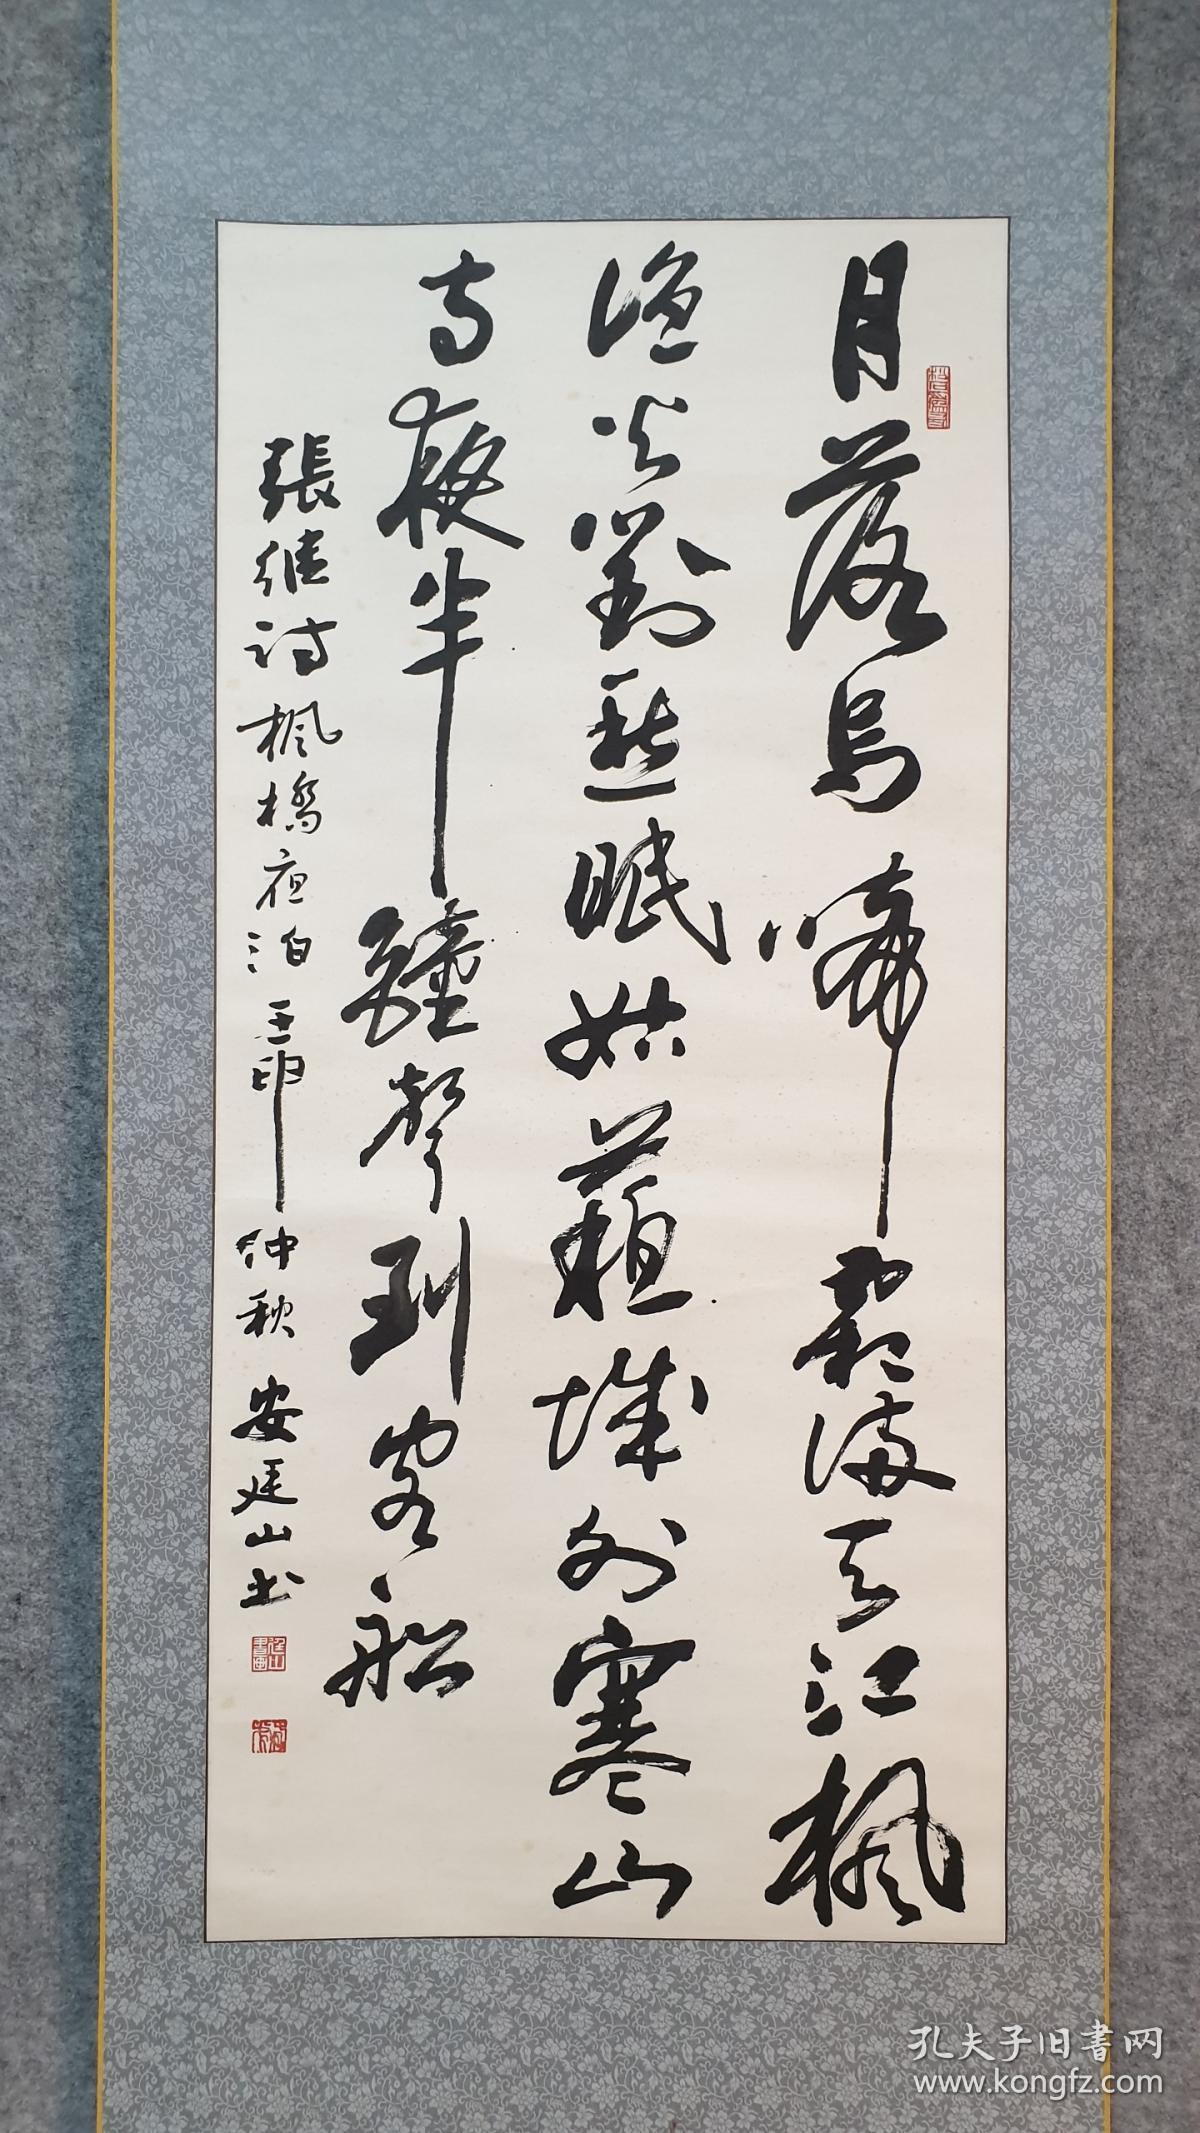 月落烏啼霜滿天江楓
漁火對愁眠姑蘓城外寒山
寺夜半鐘聲到客船
張継詩楓橋夜泊壬申仲秋安廷山书
孔夫子旧書网
www.kongfz.com